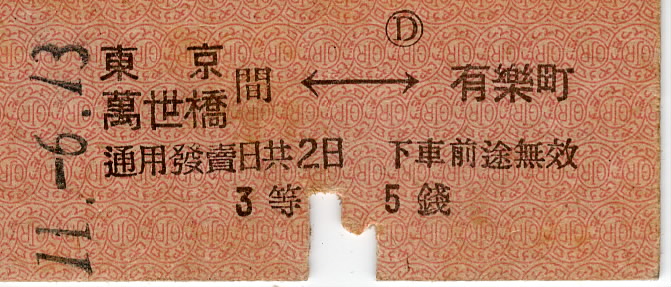 11.-6.13
Ⓓ
東京
萬世橋 間 ⟷ 有樂町
通用發賣日共2日 下車前途無效
3等 5錢